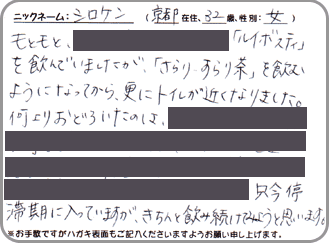 ニックネーム：シロケン（京都在住、32歳、性別：女）
もともと、「ルイボスティ」
を飲んでいましたが、「さらり・すらり茶」を飲む
ようになってから、更にトイレが近くなりました。
何よりおどろいたのは、
只今停
滞期に入っていますが、きちんと飲み続けてみようと思います。
※お手数ですがハガキ表面もご記入くださいますようお願い申し上げます。